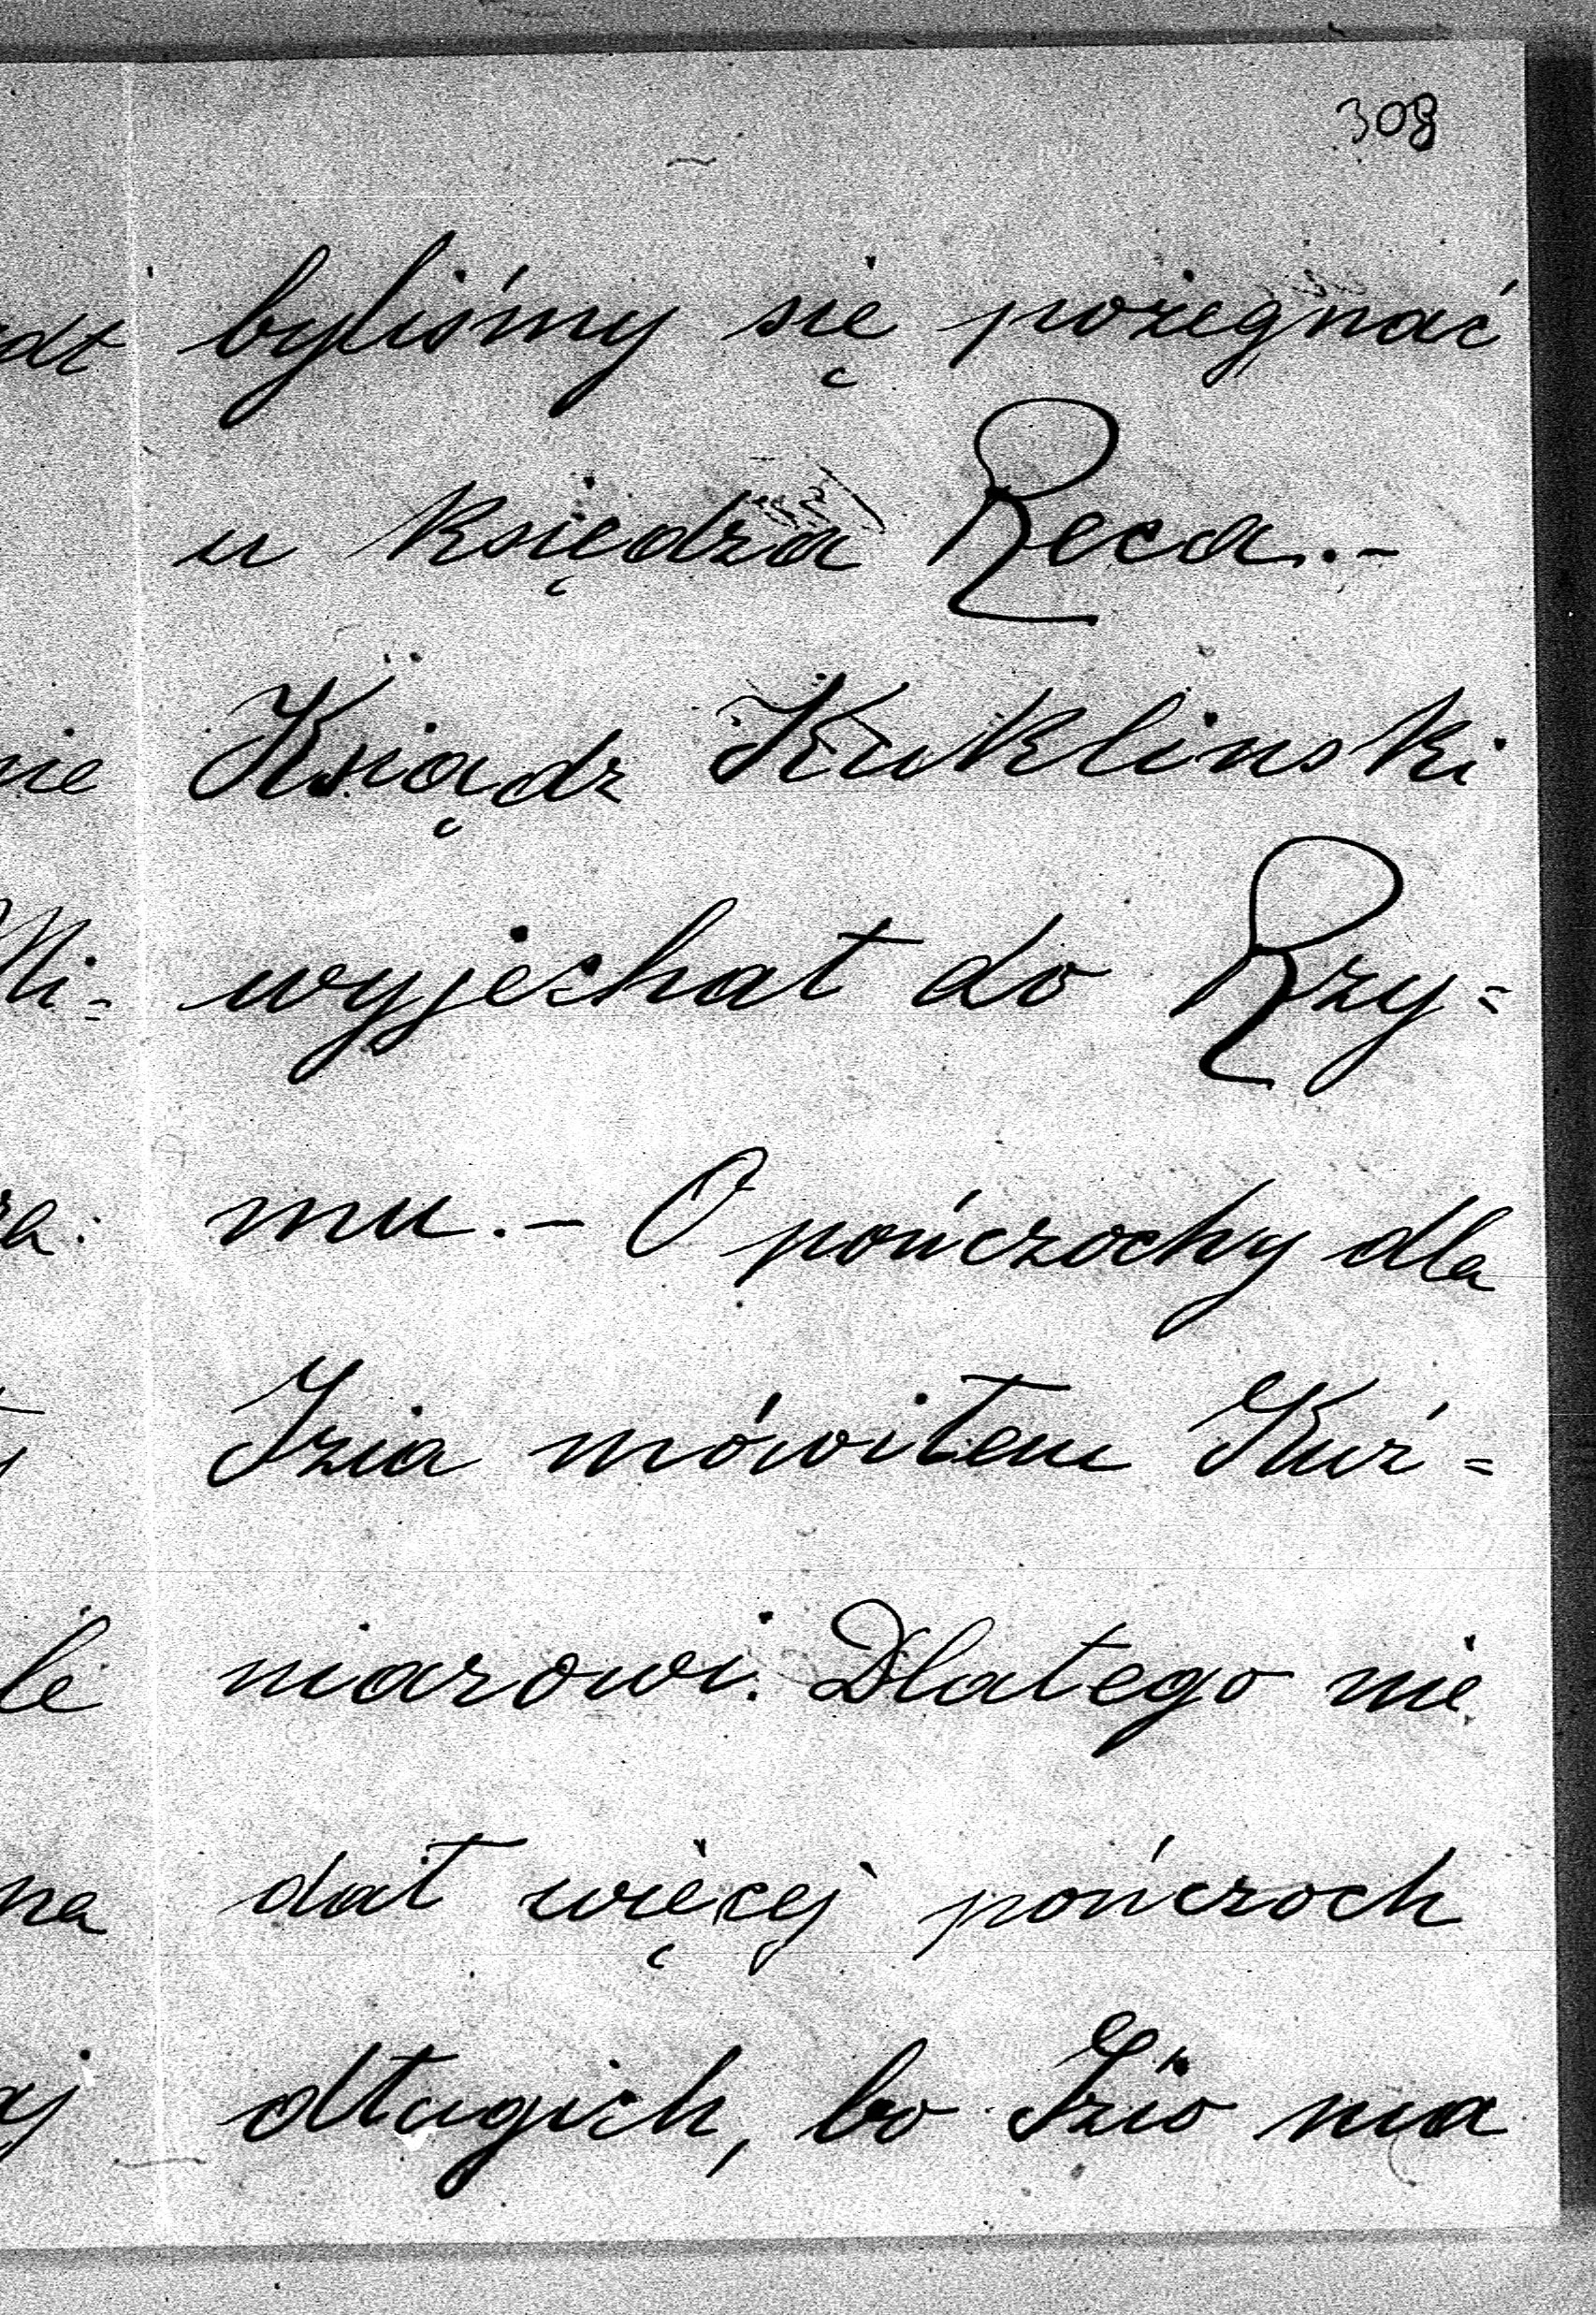 308
byliśmy się pożegnać
u księdza Reca.-
Ksiądz Kuklinski
wyjechał do Rzy=
mu.- O pończochy dla
Izia mówiłem Kuź=
niarowi. Dlatego nie
dał więcej pończoch
długich, bo Izio ma